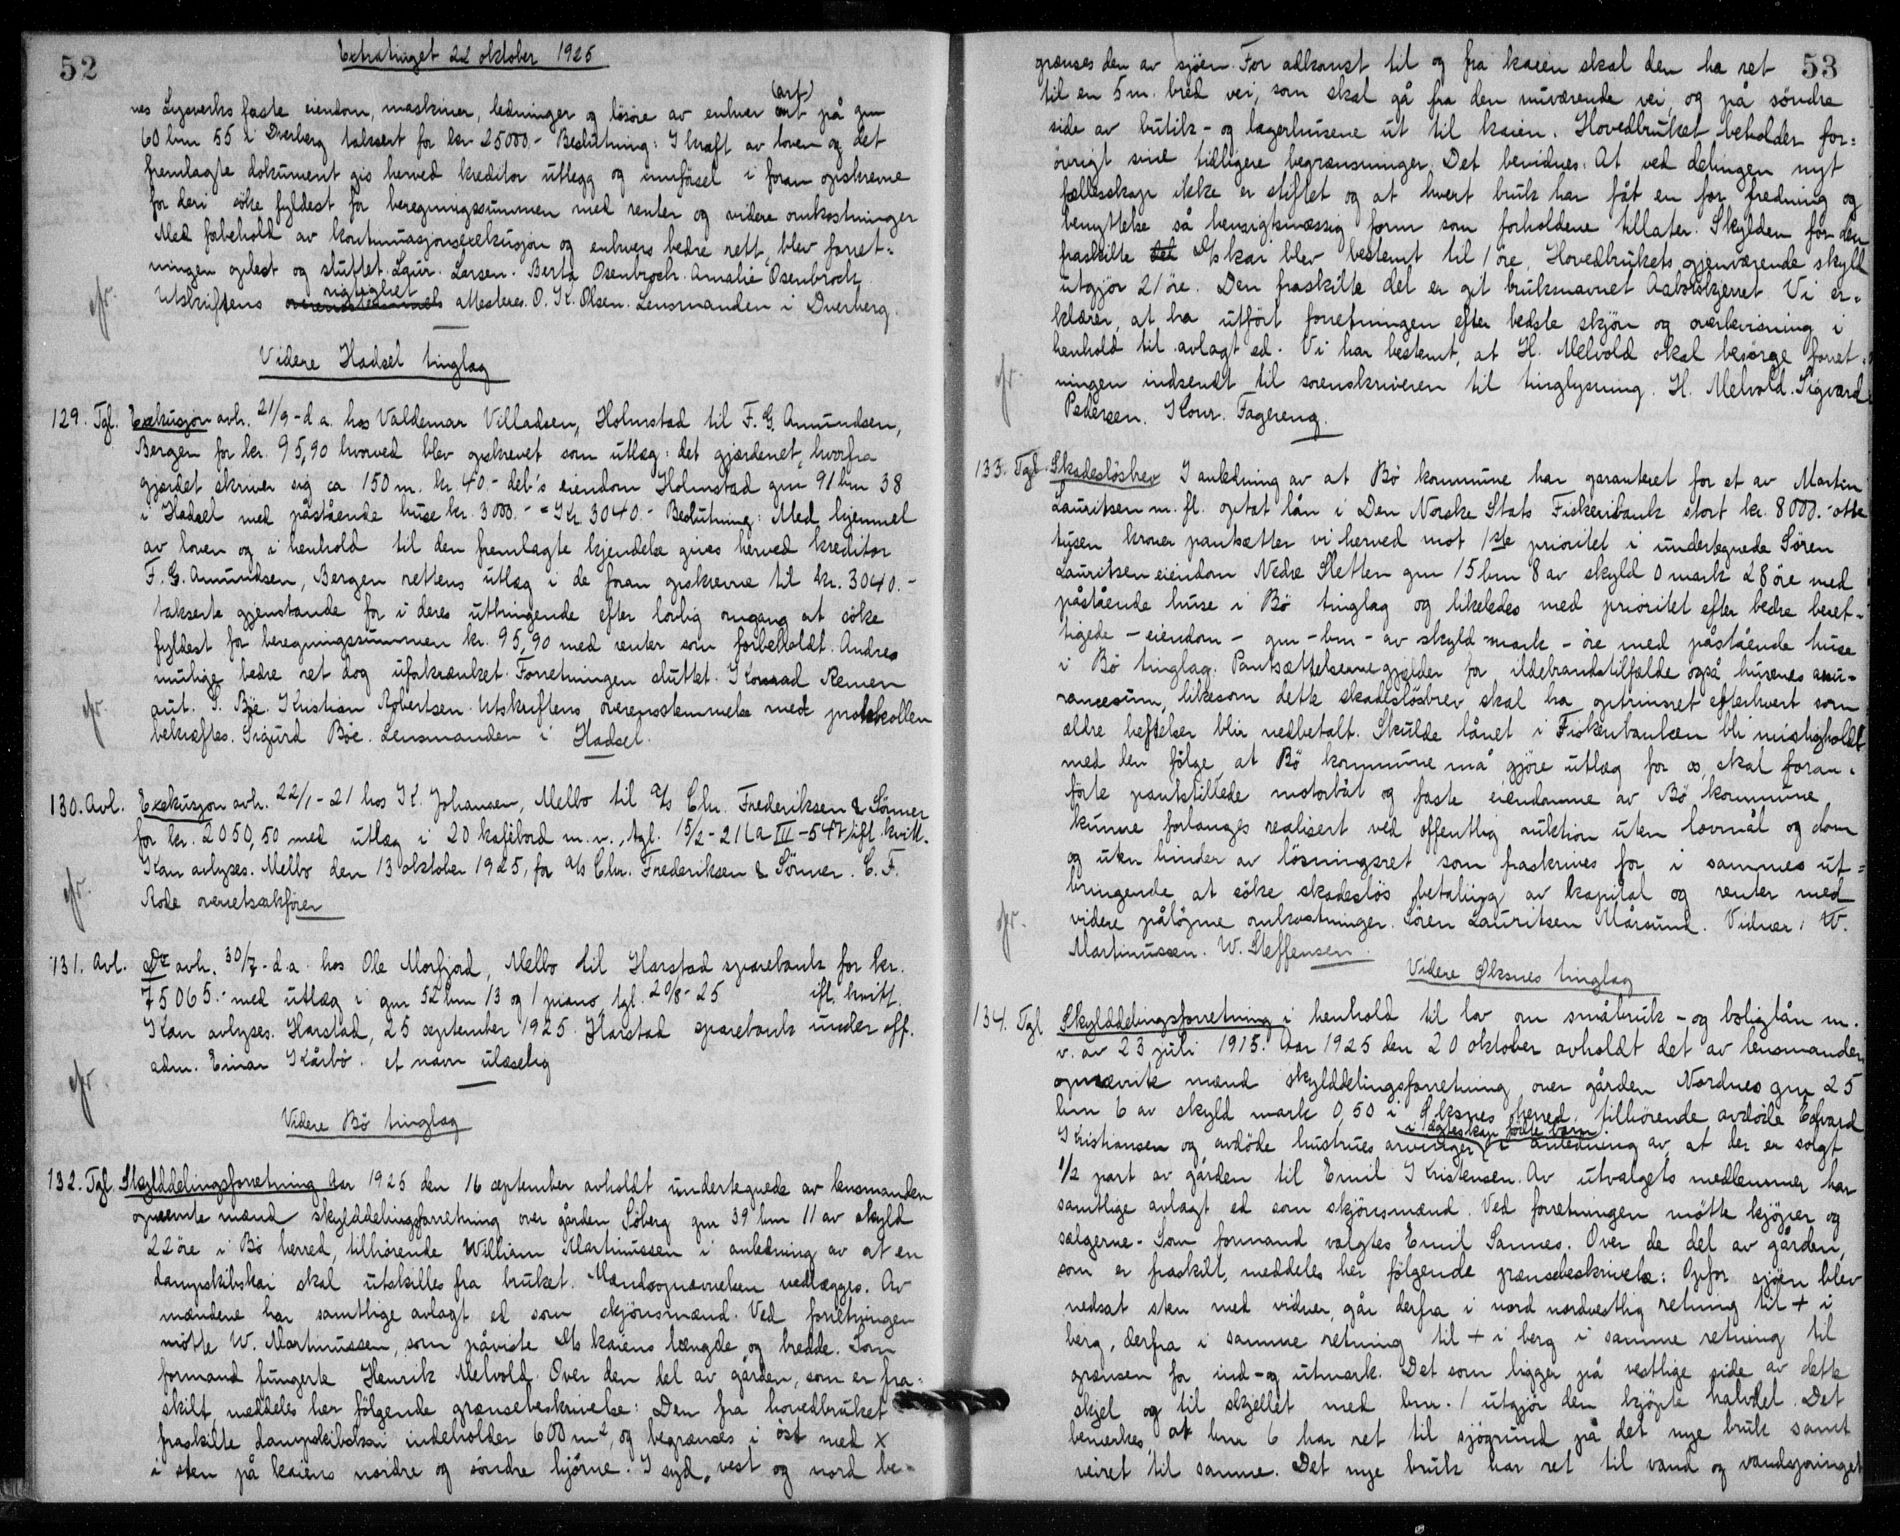 52
Extratinget 22 oktober 1925
nes Lysverks faste eiendom, maskiner, ledninger og lösöre av enhver art (art) på gnr
60 bnr 55 i Dverberg taksert for kr 25000.- Beslutning: I kraft av loven og det
fremlagte dokument gis herved kreditor utlegg og innförsel i foran opskrevne
for deri söke fyldest for beregningssummen med renter og videre omkostninger
Med forbehold av kontinuasjonsexekusjon og enhvers bedre rett, blev forret-
ningen oplest og sluttet. Laur. Larsen. Berta Osenbroch. Amalie Osenbroch
Utskriftens overensstemmels rigtighet attesteres. O. K. Olsen. Lensmanden i Dverberg.
Videre Hadsel tinglag
129. Tgl. Exekusjon avh. 21/9 - d.a. hos Valdemar Villadsen, Holmstad til F. G. Amundsen,
Bergen for kr. 95,90 hvorved blev opskrevet som utlæg: det gjærdenet, hvorfra
gjærdet skriver sig ca 150 m. kr 40.- deb's eiendom Holmstad gnr 91 bnr 38
i Hadsel med påstående huse kr. 3000.- = Kr. 3040.- Beslutning: Med hjemmel
av loven og i henhold til den fremlagte kjendelse gives herved kreditor
F. G. Amundsen, Bergen rettens utlæg i de foran opskrevne til kr. 3040.-
takserte gjenstande for i deres utbringende efter lovlig omgang at söke
fyldest for beregningssummen kr. 95,90 med renter som forbeholdt. Andres
mulige bedre ret dog uforkrænket. Forretningen sluttet. Konrad Remen
aut. S. Böe. Kristian Robertsen. Utskriftens overensstemmelse med protokollen
bekræftes. Sigurd Böe. Lensmanden i Hadsel.
130. Avl. Exekusjon avh. 22/1 - 21 hos K. Johansen, Melbo til a/s Chr. Frederiksen & Sönner
for kr. 2050,50 med utlæg i 20 kafébord m.v., tgl. 15/2 - 21 La III - 547, ifl. kvitt.
Kan avlyses. Melbo den 13 oktober 1925, for a/s Chr. Frederiksen & Sönner. C. F.
Rode overretssakförer
131. Avl. Do avh. 30/7 - d.a. hos Ole Morfjord, Melbo til Harstad sparebank for kr.
75065.- med utlæg i gnr 52 bnr 13 og 1 piano, tgl. 20/8 - 25 ifl. kvitt.
Kan avlyses. Harstad, 25 september 1925. Harstad sparebank under off.
adm. Einar Kårbö. et navn ulæselig
Videre Bö tinglag
132. Tgl. Skylddelingsforretning Aar 1925 den 16 september avholdt undertegnede av lensmanden
opnevnte mænd skylddelingsforretning over gården Söberg gnr 39 bnr 11 av skyld
22 öre i Bö herred, tilhörende William Martinussen i anledning av at en
dampskibskai skal utskilles fra bruket. Mændsopnævnelsen vedlægges. Av
mændene har samtlige avlagt ed som skjönsmænd. Ved forretningen
mötte W. Martinussen, som påviste kaiens længde og bredde. Som
formand fungerte Henrik Melvold. Over den del av gården, som er fra-
skilt, meddeles her fölgende grænsebeskrivelse: Den fra hovedbruket
fraskilte dampskibskai indeholder 600 m², og begrænses i öst med x
i sten på kaiens nordre og söndre hjörne. I syd, vest og nord be-
53
grænses den av sjöen. For adkomst til og fra kaien skal den ha ret
til en 5 m. bred vei, som skal gå fra den nuværende vei, og på söndre
side av butik- og lagerhusene ut til kaien. Hovedbruket beholder for-
övrigt sine tidligere begrænsninger. Det bevidnes: At ved delingen nyt
fællesskap ikke er stiftet og at hvert bruk har fåt en for fredning og
benyttelse så hensigtsmæssig form som forholdene tillater. Skylden for den
fraskilte kai blev bestemt til 1 öre. Hovedbrukets gjenværende skyld
utgjör 21 öre. Den fraskilte del er git bruksnavnet Vi er-
klærer, at ha utfört forretningen efter bedste skjön og overbevisning i
henhold til avlagt ed. Vi har bestemt, at H. Melvold skal besörge forret-
ningen indsendt til sorenskriveren til tinglysning. H. Melvold. Sigvard
Pedersen. Konr. Fagereng.
133. Tgl. Skadeslösbrev I anledning av at Bö kommune har garanteret for et av Martin
Lauritsen m. fl. optat lån i Den Norske Stats Fiskeribank stort kr. 8000.- otte
tusen kroner pantsætter vi herved mot 1ste prioritet i undertegnede Sören
Lauritsen eiendom Nedre Sletten gnr 15 bnr 8 av skyld 0 mark 28 öre med
påstående huse i Bö tinglag og likeledes med prioritet efter bedre beret-
tigede - eiendom - gnr - bnr - av skyld mark - öre med påstående huse
i Bö tinglag. Pantsættelserne gjelder for ildebrandstilfælde også husenes assu-
rancesum, likesom dette skadeslösbrev skal ha optrinsret efterhvert som
ældre heftelser blir nedbetalt. Skulde lånet i Fiskeribanken bli misligholdt
med den fölge at Bö kommune må gjöre utlæg for os, skal foran-
förte pantstillede motorbåt og faste eiendomme av Bö kommune
kunne forlanges realisert ved offentlig auktion uten lovmål og dom
og uten hinder av lösningsret som fraskrives for i sammes ut-
bringende at söke skadeslös betaling av kapital og renter med
videre pålöpne omkostninger. Sören Lauritsen Mårsund. Vidner: W.
Martinussen. W. Steffensen
Videre Øksnes tinglag
134. Tgl. Skylddelingsforretning i henhold til lov om småbruk- og boliglån m.
v. av 23 juli 1915. Aar 1925 den 20 oktober avholdt det av lensmanden
opnævnte mænd skylddelingsforretning over gården Nordnes gnr 25
bnr 6 av skyld mark 0,50 i Öksnes herred, tilhörende avdöde Edvard
Kristiansen og avdöde hustrues arvinger i ægteskap födte barn i anledning av, at der er solgt
1/2 part av gården til Emil Kristensen. Av utvalgets medlemmer har
samtlige avlagt ed som skjönsmænd. Ved forretningen mötte kjöper og
sælgerne. Som formand valgtes Emil Sannes. Over de del av gården,
som er fraskilt, meddeles her fölgende grænsebeskrivelse: Opfor sjöen blev
nedsat sten med vidner, går derfra i nord nordvestlig retning til + i
berg, derfra i samme retning til + i berg i samme retning til
grænsen for ind- og utmark. Det som ligger på vestlige side av dette
skjel og til skjellet med bnr. 1 utgjör den kjöpte halvdel. Det
bemerkes, at bnr 6 har ret til sjögrund på det nye bruk samt
veiret til samme. Det nye bruk har ret til vand og vandspringet